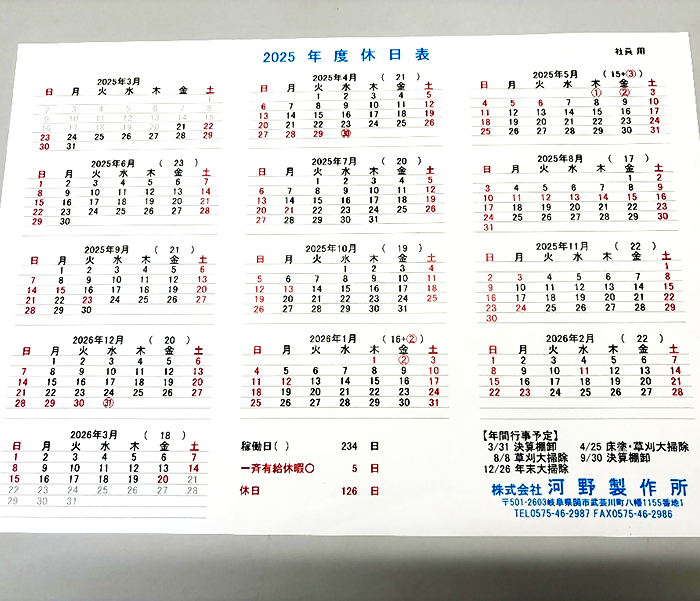 2025 年 度 休 日 表
社員 用
2025年3月
日 月 火 水 木 金 土
1
2 3 4 5 6 7 8
9 10 11 12 13 14 15
16 17 18 19 20 21 22
23 24 25 26 27 28 29
30 31
2025年4月 ( 21 )
日 月 火 水 木 金 土
1 2 3 4 5
6 7 8 9 10 11 12
13 14 15 16 17 18 19
20 21 22 23 24 25 26
27 28 29 ㉚
2025年5月 ( 15+③)
日 月 火 水 木 金 土
① ② 3
4 5 6 7 8 9 10
11 12 13 14 15 16 17
18 19 20 21 22 23 24
25 26 27 28 29 30 31
2025年6月 ( 23 )
日 月 火 水 木 金 土
1 2 3 4 5 6 7
8 9 10 11 12 13 14
15 16 17 18 19 20 21
22 23 24 25 26 27 28
29 30
2025年7月 ( 20 )
日 月 火 水 木 金 土
1 2 3 4 5
6 7 8 9 10 11 12
13 14 15 16 17 18 19
20 21 22 23 24 25 26
27 28 29 30 31
2025年8月 ( 17 )
日 月 火 水 木 金 土
1 2
3 4 5 6 7 8 9
10 11 12 13 14 15 16
17 18 19 20 21 22 23
24 25 26 27 28 29 30
31
2025年9月 ( 21 )
日 月 火 水 木 金 土
1 2 3 4 5 6
7 8 9 10 11 12 13
14 15 16 17 18 19 20
21 22 23 24 25 26 27
28 29 30
2025年10月 ( 19 )
日 月 火 水 木 金 土
1 2 3 4
5 6 7 8 9 10 11
12 13 14 15 16 17 18
19 20 21 22 23 24 25
26 27 28 29 30 31
2025年11月 ( 22 )
日 月 火 水 木 金 土
1
2 3 4 5 6 7 8
9 10 11 12 13 14 15
16 17 18 19 20 21 22
23 24 25 26 27 28 29
30
2026年12月 ( 20 )
日 月 火 水 木 金 土
1 2 3 4 5 6
7 8 9 10 11 12 13
14 15 16 17 18 19 20
21 22 23 24 25 26 27
28 29 30 ㉛
2026年1月 ( 16+②)
日 月 火 水 木 金 土
1 ② 3
4 5 6 7 8 9 10
11 12 13 14 15 16 17
18 19 20 21 22 23 24
25 26 27 28 29 30 31
2026年2月 ( 22 )
日 月 火 水 木 金 土
1 2 3 4 5 6 7
8 9 10 11 12 13 14
15 16 17 18 19 20 21
22 23 24 25 26 27 28
2026年3月 ( 18 )
日 月 火 水 木 金 土
1 2 3 4 5 6 7
8 9 10 11 12 13 14
15 16 17 18 19 20 21
22 23 24 25 26 27 28
29 30 31
稼働日( ) 234 日
一斉有給休暇〇 5 日
休日 126 日
【年間行事予定】
3/31 決算棚卸 4/25 床塗・草刈大掃除
8/8 草刈大掃除 9/30 決算棚卸
12/26 年末大掃除
株式会社 河 野 製 作 所
〒501-2603岐阜県関市武芸川町八幡1155番地1
TEL0575-46-2987 FAX0575-46-2986